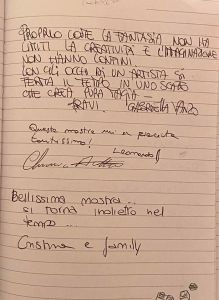 PROPRIO COME LA FANTASIA NON HA
LIMITI LA CREATIVITÀ E L'IMMAGINAZIONE
NON HANNO CONFINI.
CON GLI OCCHI DI UN ARTISTA SI
FERMA IL TEMPO IN UNO
CHE CREA PURA MAGIA -
BRAVI. GABRIELLA
Questa mostra mi è piaciuta
tantissimo!
Leonardo
Bellissima mostra...
si torna indietro nel
tempo...
Cristina e family